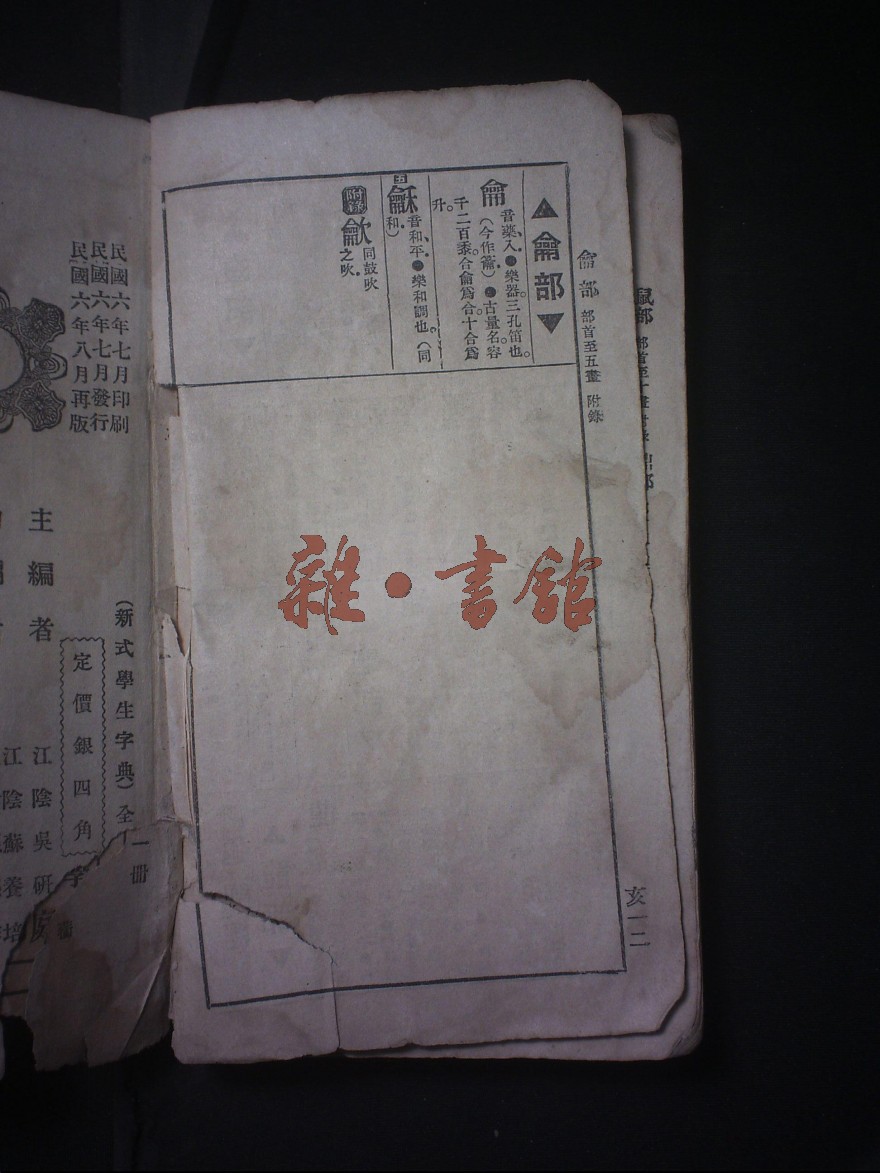 龠部 部首至五畫 附錄
▲龠部▼
龠
音藥、入●樂器。三孔笛也。
(今作籥)●古量名。容
千二百黍。合龠爲合。十合爲
升。
五
龢
音和、平●樂和調也。(同
和)
附錄
龡
同鼓吹
之吹。
亥一二
雜·書館
民國六年七月印刷
民國六年七月發行
民國六年八月再版
(新式學生字典)全一冊
定價銀四角
主編者
江陰吳研
江陰蘇養培